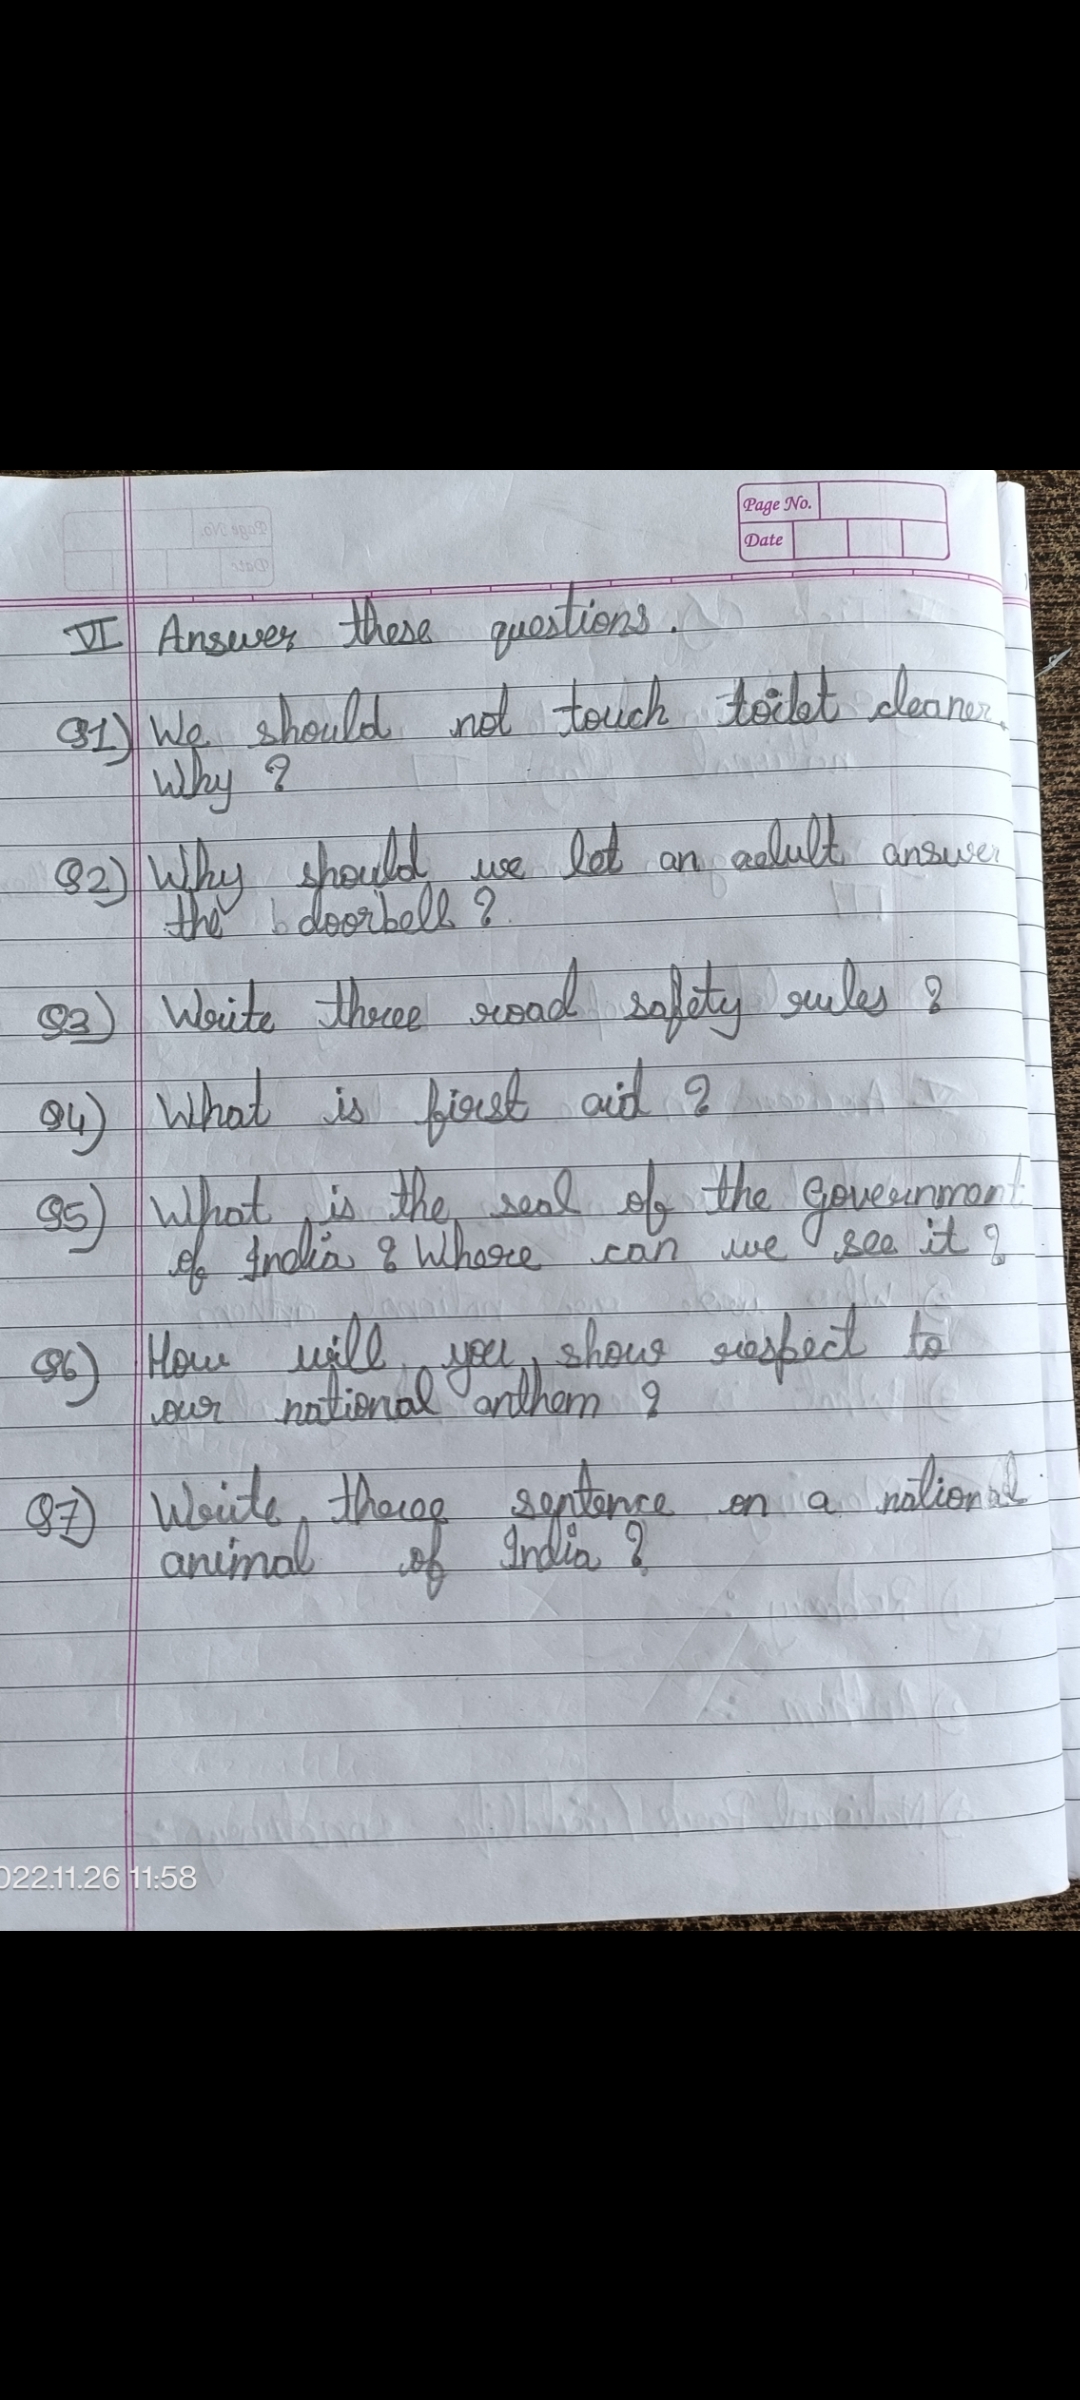 Page No.
Date
VI Answer these questions.
Q1) We should not touch toilet cleaner.
Why ?
Q2) Why should we let an adult answer
the doorbell ?
Q3) Write three road safety rules ?
Q4) What is first aid ?
Q5) What is the seal of the government
of India ? Where can we see it ?
Q6) How will you show respect to
our national anthem ?
Q7) Write three sentence on a national
animal of India ?
022.11.26 11:58